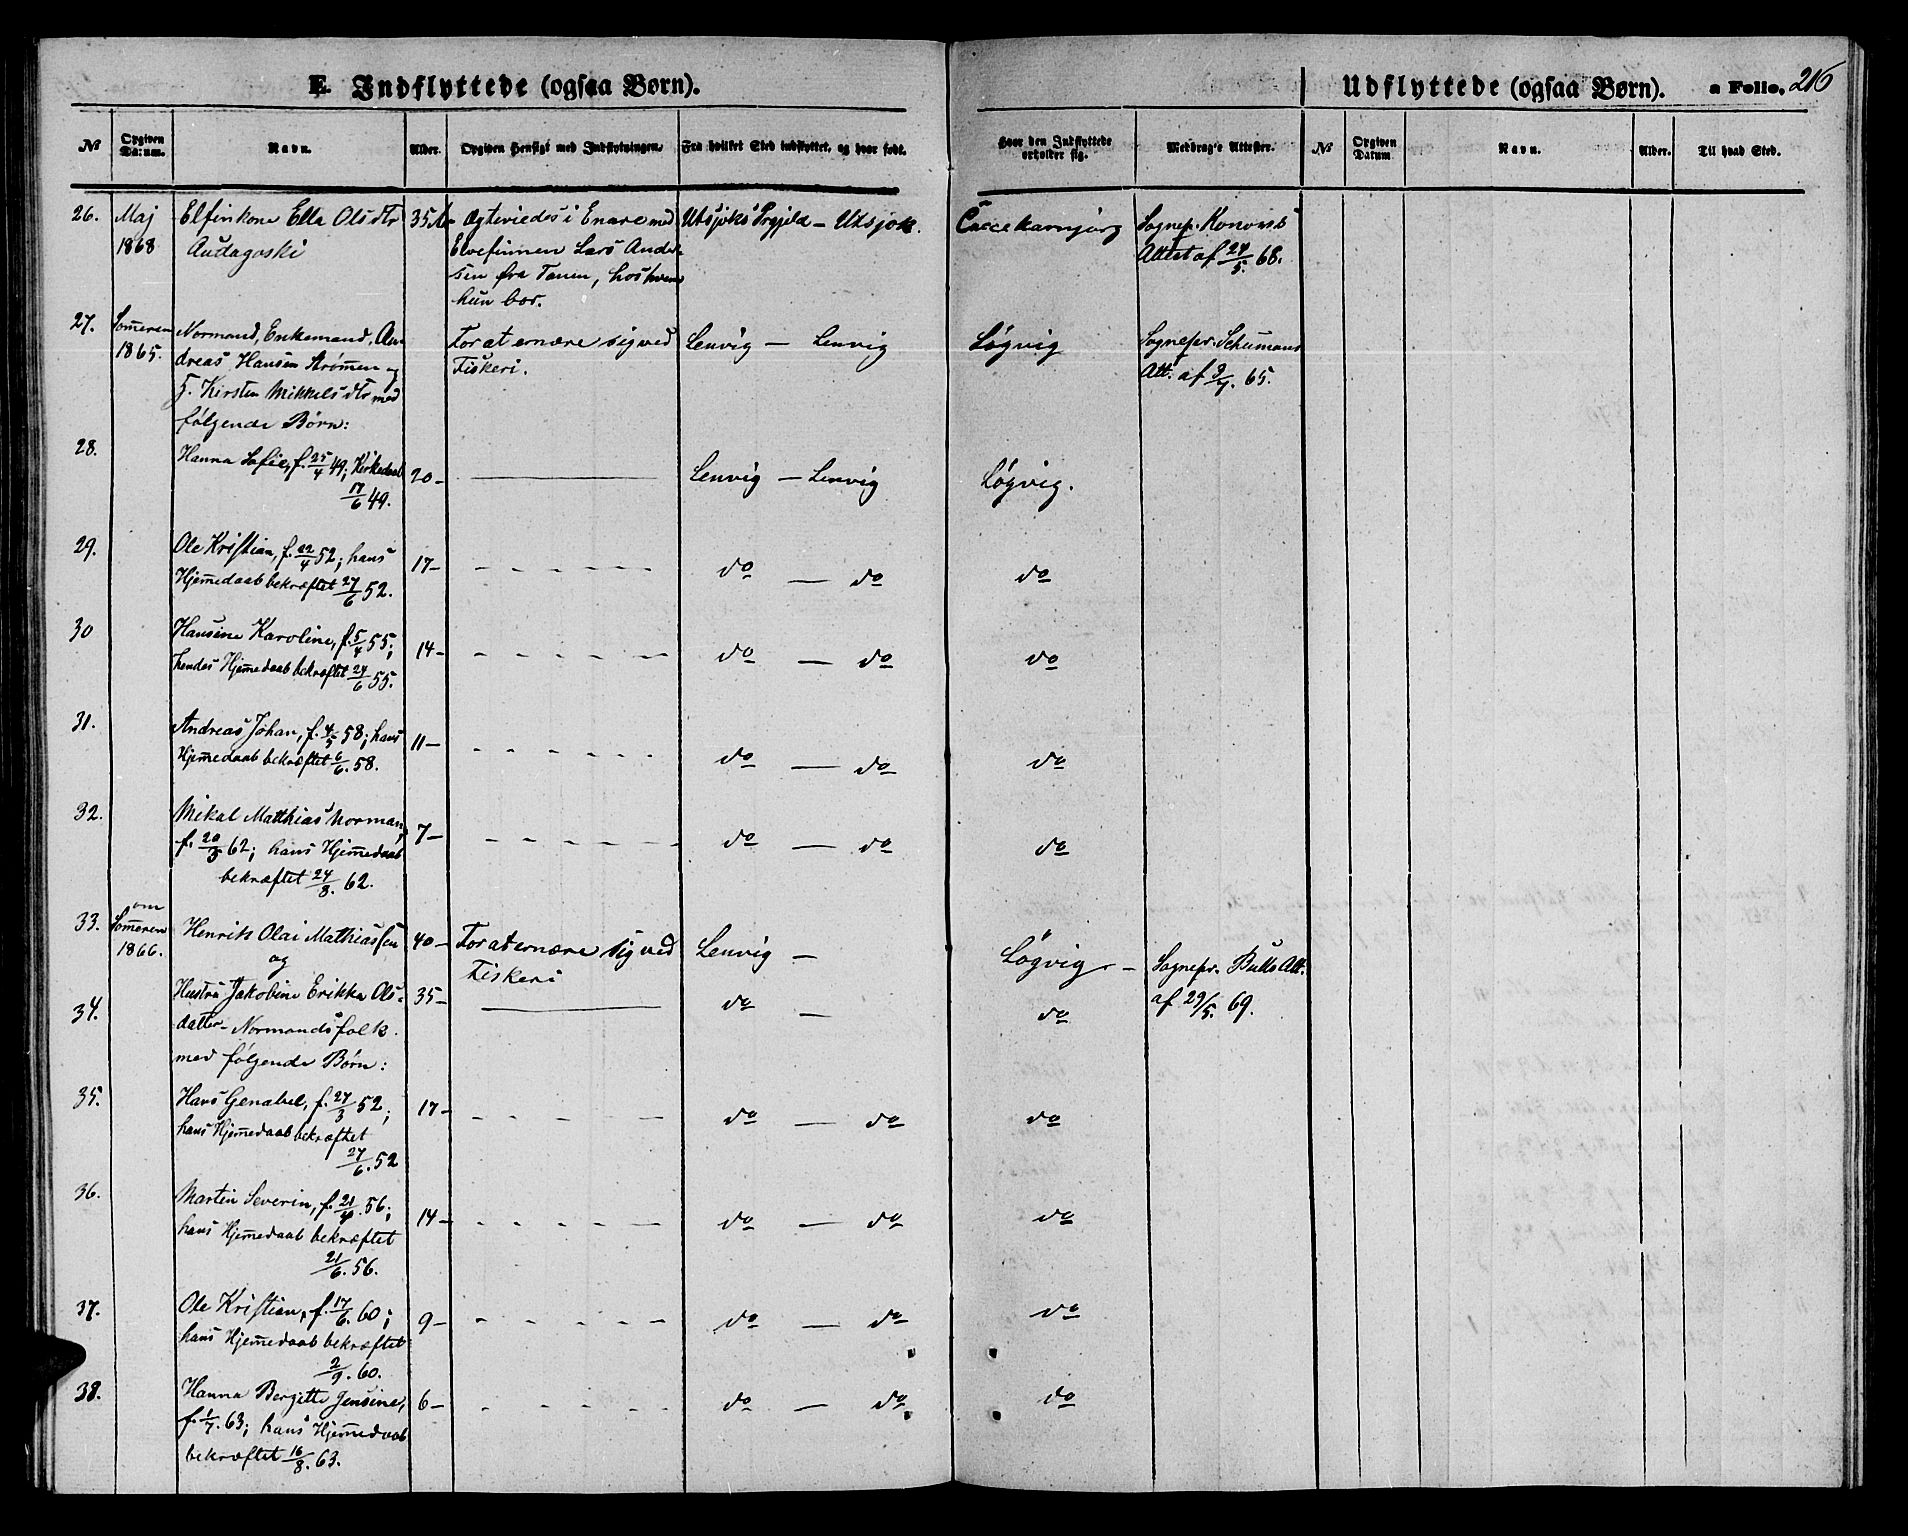 E. Indflyttede (ogsaa Børn).
Udflyttede (ogsaa Børn).
a Folio, 216
№
Opgiven Datum.
Navn.
Alder.
Opgiven Hensigt med Indflytningen.
Fra hvilket Sted indflyttet, og hvor født.
Hvor den Indflyttede opholder sig.
Medbragte Attester.
№
Opgiven Datum
Navn.
Alder.
Til hvad Sted.
26. Maj Elfinkone Ella Olsdtr 35 Ægteviedes i Enare med Utsjoks Prgjeld – Utsjok. Sognep.
1868 Elvefinnen Lars Ander- Attest af 24/5. 68.
sen fra Tanen, hos hvem
hun bor.
27. Someren Normand, Enkemand, An- For at ernære sig ved Lenvig – Lenvig Løgvig Sognepr. Schumans
1865. dreas Hansen Strømen og Fiskeri. Att. af 9/7. 65.
f. Kirsten Mikkelsdtr med
følgende Børn:
28. Hanna Sofie, f. 25/4 49; Kirkedaab 20 – Lenvig – Lenvig Løgvig.
17/6 49.
29. Ole Kristian, f. 22/4 52; hans 17 – do – do do
Hjemedaab bekræftet 27/6 52.
30 Hansine Karoline, f. 5/4 55; 14 – do – do do
hendes Hjemedaab bekræftet 24/6 55.
31. Andreas Johan, f. 4/5 58; hans 11 – do – do do
Hjemedaab bekræftet 6/6. 58.
32. Mikal Matthias Norman, 7 – do – do do
f. 20/5 62; hans Hjemedaab
bekræftet 24/8. 62.
33. om Someren Henrik Olai Mathiassen 40 – For at ernære sig ved Lenvig – Løgvig – Sognepr. Bulls Att.
1866. og Fiskeri af 29/5. 69.
34. Hustru Jakobine Erikka Ols- 35 – do – do
datter – Normandsfolk.
med følgende Børn:
35. Hans Genabel, f. 27/3 52; 17 – do – do do
hans Hjemedaab bekræftet
27/6. 52
36. Martin Severin, f. 21/4. 56; 14 – do – do do
hans Hjemedaab bekræftet
21/6. 56.
37. Ole Kristian, f. 17/6. 60; 9 – do – do do
hans Hjemedaab bekræftet
2/9. 60.
38. Hanna Bergitte Jensine, 6 – do – do do
f. 1/7. 63; hans Hjemedaab
bekræftet 16/8. 63.